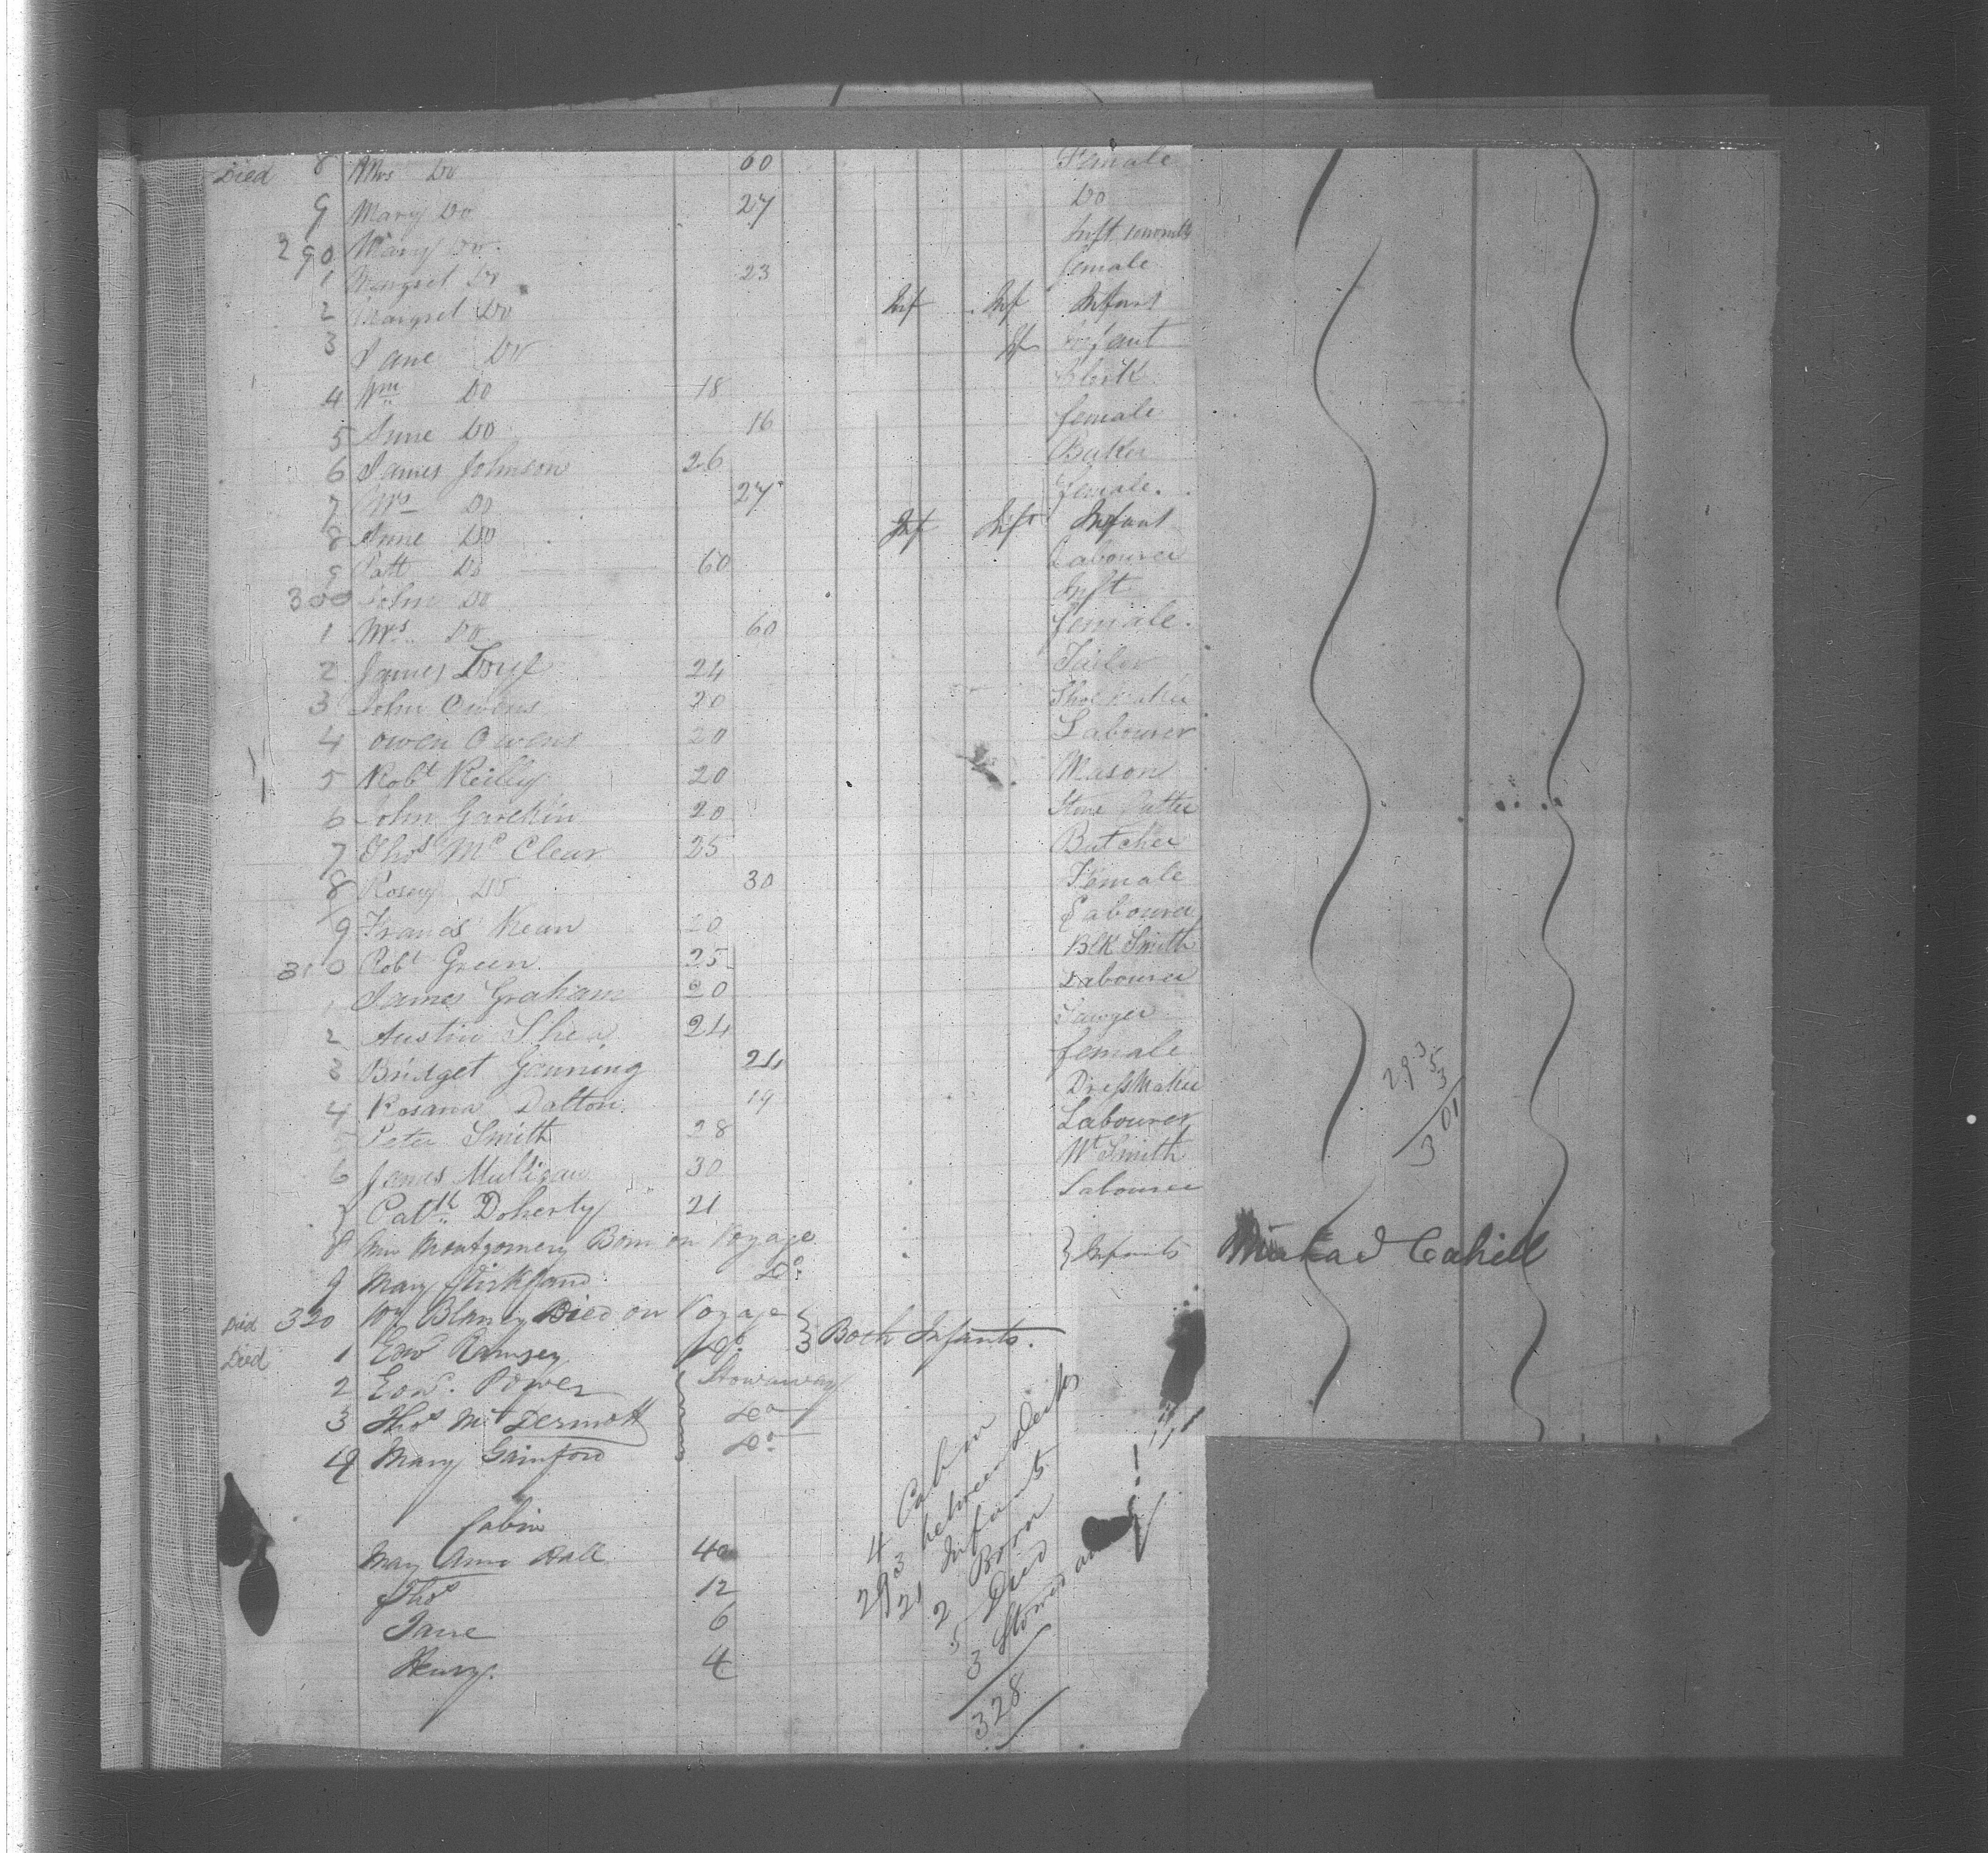 Died 8 Mrs Do 60 Female
9 Mary Do 27 Do
290 Mary Do Inft
1 Margret Do 23 female
2 Margret Do Inf Inf Infant
3 Jane Do Inf Infant
4 Wm Do 18 Clerk
5 Anne Do 16 female
6 James Johnson 26 Baker
7 Mrs Do 27 female.
8 Anne Do Inf Inft Infant
9 Patt Do 60 Labourer
300 John Do Inft
1 Mrs Do 60 female.
2 James 24 Tailor
3 John Owens 20 Shoe Maker
4 Owen Owens 20 Labourer
5 Robt Reilly 20 Mason
6 John 20 Stone Cutter
7 Thos Mc Clear 25 Butcher
8 Rosey Do 30 Female
9 Francis Kean 20 Labourer
310 Robt Green 25 Blk Smith
1 James Graham 20 Labourer
2 Austin Shea 24 Sawyer
3 Bridget 24 female
4 Rosanna Dalton 19 DressMaker
5 Peter Smith 28 Labourer
6 James Mulligan 30 Wt Smith
7 Doherty 21 Labourer
8 Montgomery Born on Voyage } Infants
9 Mary Do
Died 320 Wm Blaney Died on Voyage } Both Infants.
Died 1 Edw Ramsey Do
2 Edw. Power { Stowaway
3 Thos Mc Dermott Do
4 Mary Gainford Do
293
5
3
301
Cahill
Cabin
Mary Anne Hall 40
Thos 12
Jane 6
Henry. 4
4 Cabin
293 between Decks
21 Infants
2 Born
5 Died
3
328